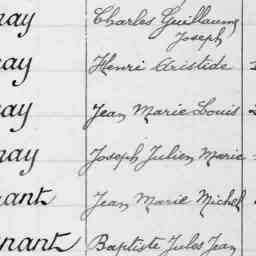 nay Charles Guillaume
Joseph
nay Henri Aristide
nay Jean Marie Louis
nay Joseph Julien Marie
nant Jean Marie Michel
nant Baptiste Jules Jean